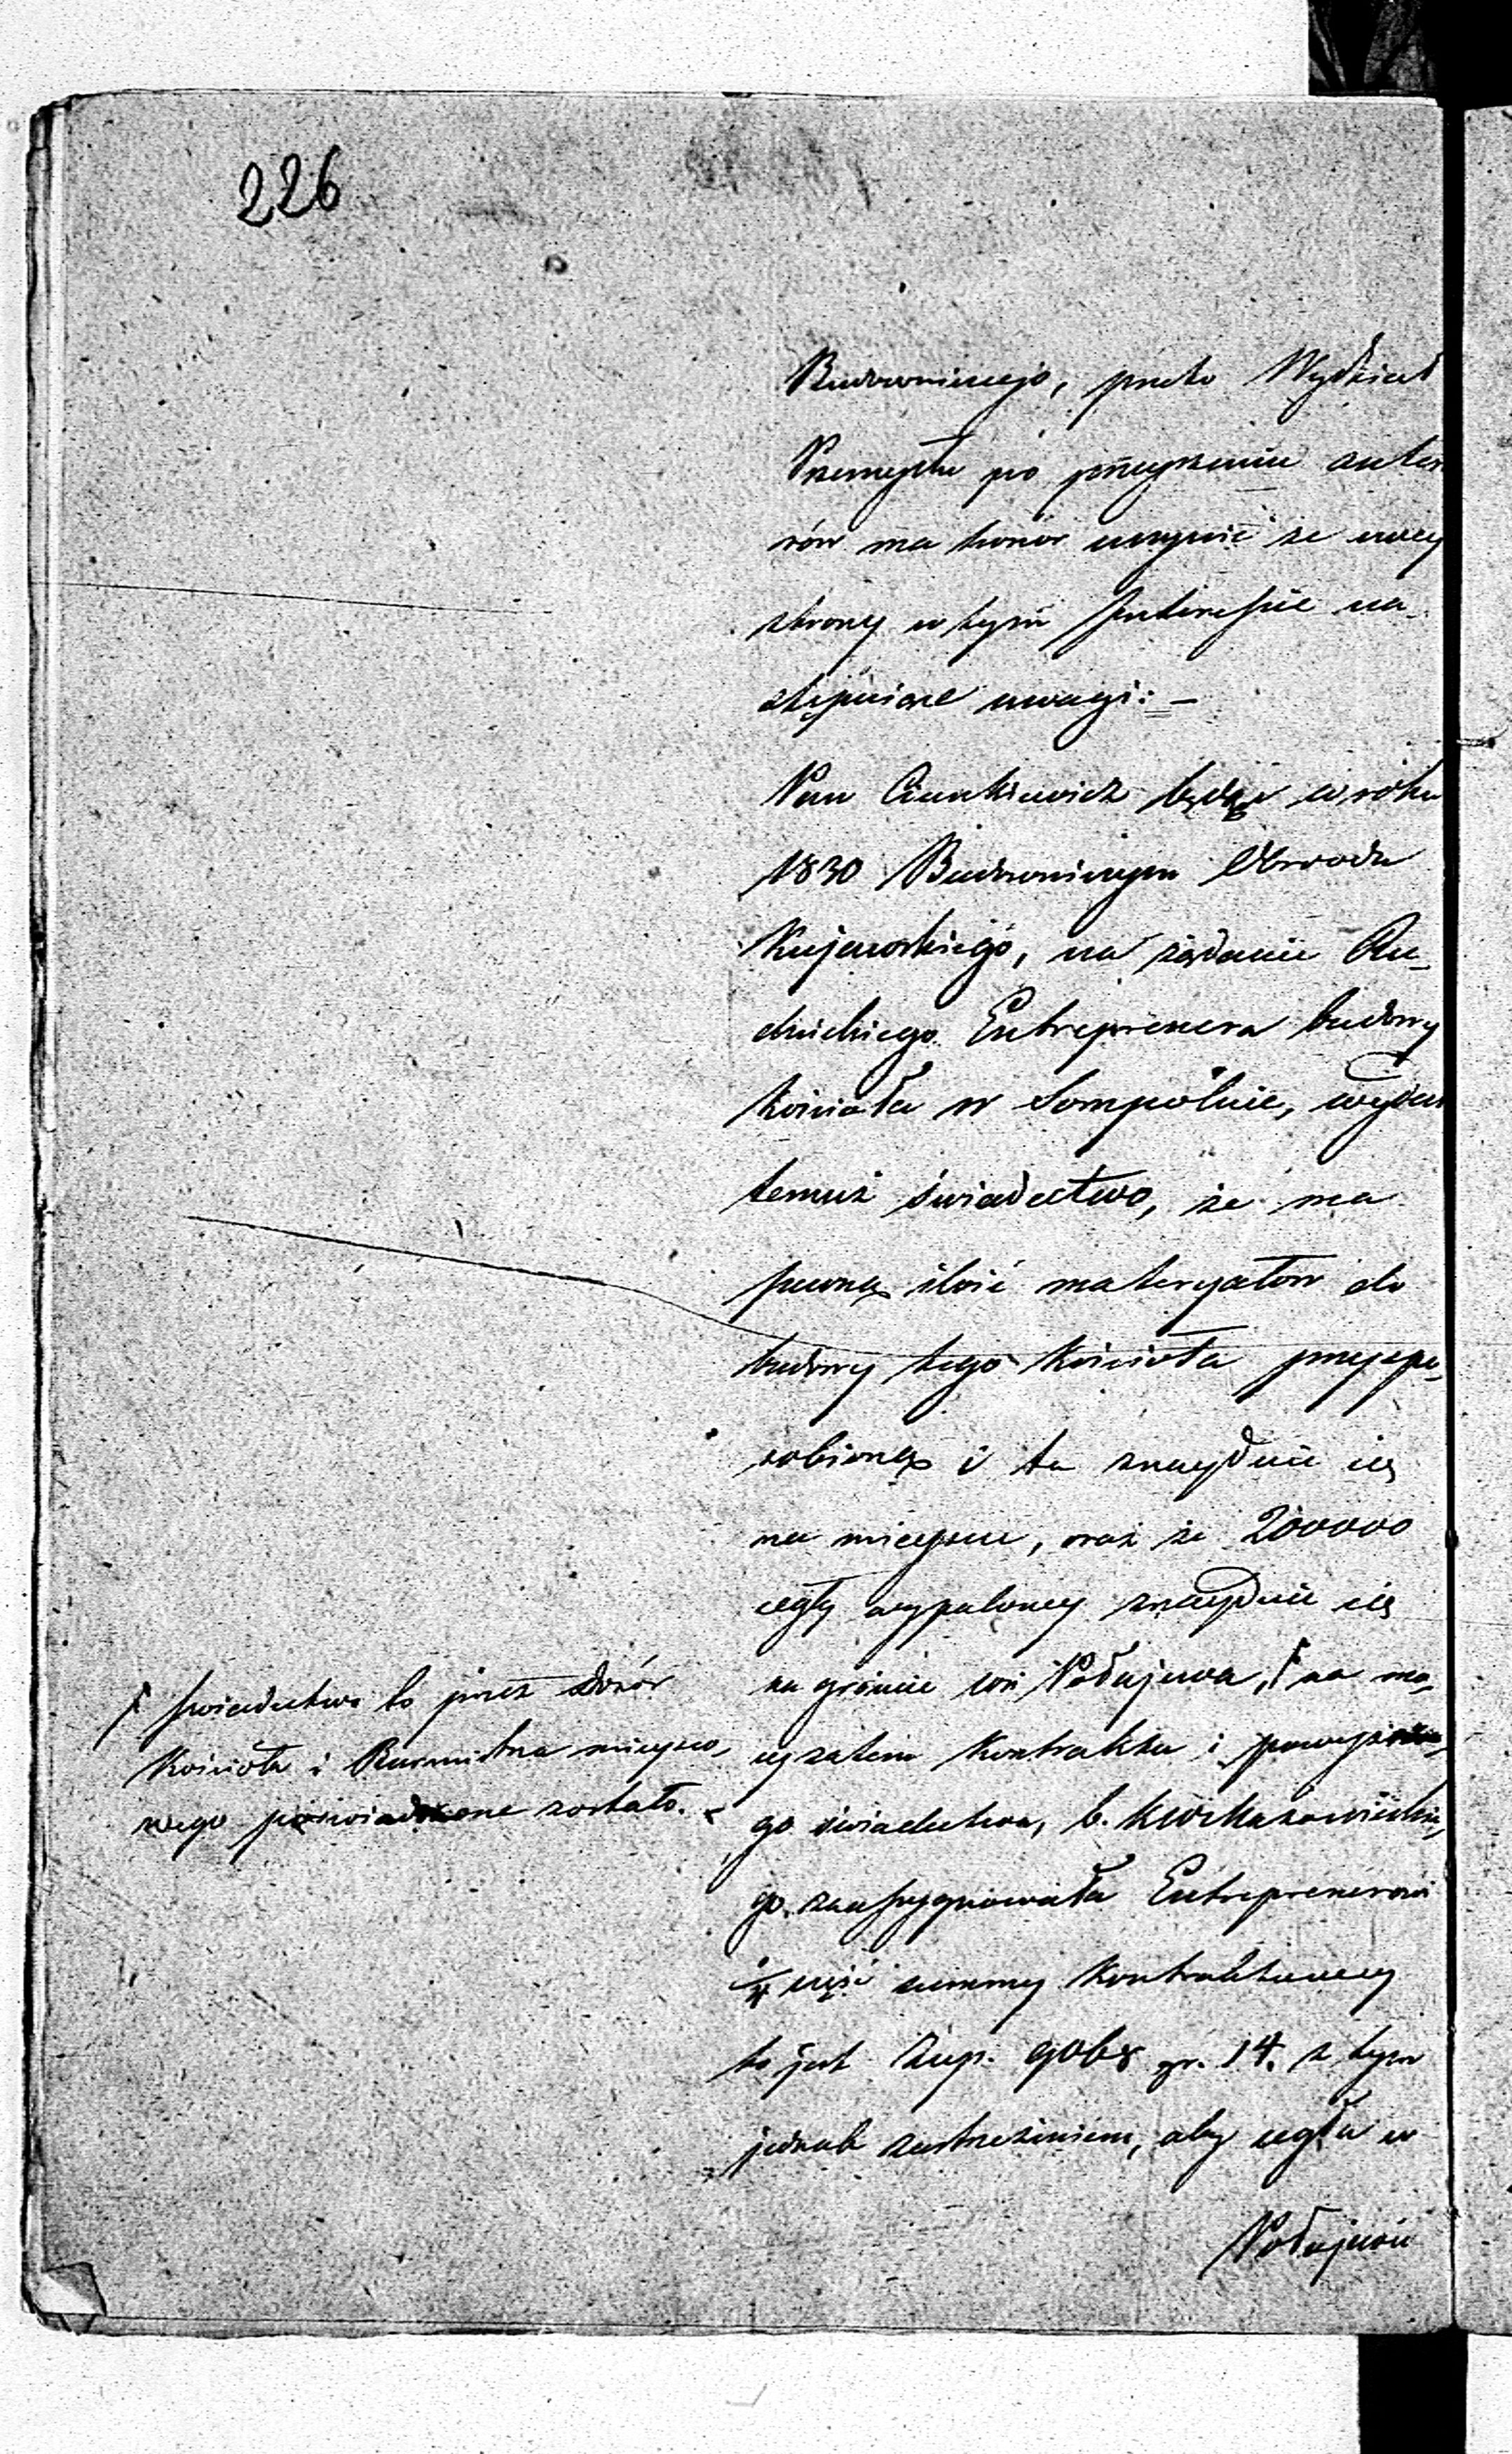 226
Budowniczego, przeto Wydział
Przemysłu po przeyrzeniu aktów
rów ma honor uczynić ze swey
strony w tym Interessie na-
stępuiące uwagi: –
Pan Ciunkiewicz będąc w roku
1830 Budowniczym Obwodu
Kujawskiego, na żądanie Ru-
dnickiego Entreprenera budowy
kościoła w Sompolnie, wydał
temuż świadectwo, że ma
pewną ilość materyałow do
budowy tego kościoła przyspo-
sobioną i ta znayduie się
na mieyscu, oraz że 200000
cegły wypaloney znayduie się
na gróncie wsi Police, na mo-
cy zatem kontraktu i powyższe-
go świadectwa, b. KW Mazowieckie-
go zaassygnowała Entreprenerowi
¼ część summy kontraktowey
to jest Złp. 9068 gr. 14. z tym
jednak zastrzeżeniem, aby cegła w
świadectwo to przez Dozór
Kościoła i Burmistrza mieysco-
wego poświadczone zostało.